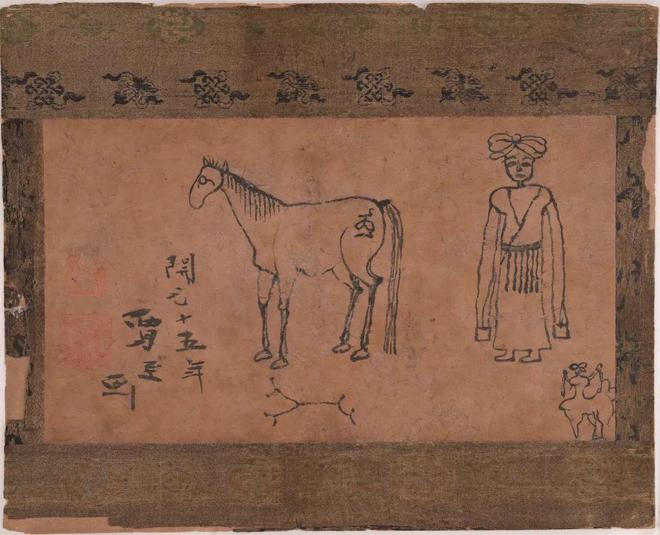 開元十五年
賈至
画